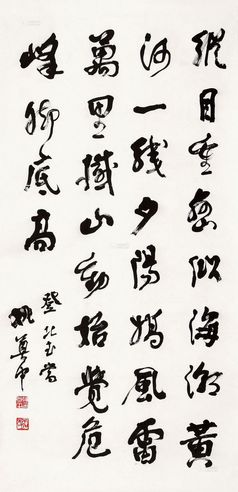 縱目重巒似海潮黃
河一綫夕陽嬌風雷
萬里撼山動始覺危
峰腳底高
登北武當
姚奠中